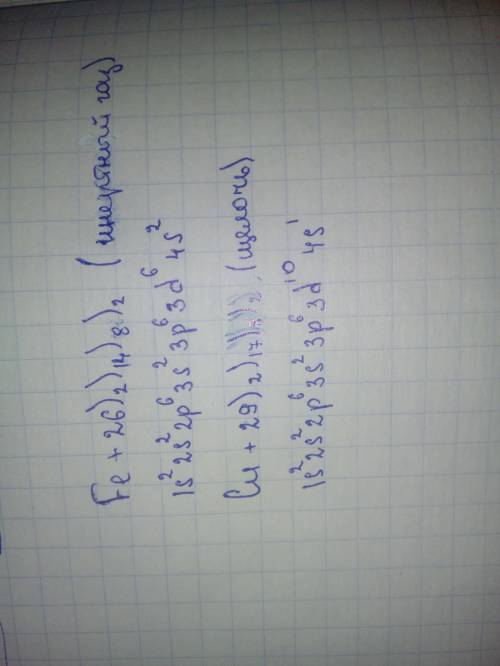 Fe + 26)2)14)8)2 (инертный газ)
1s² 2s² 2p⁶ 3s² 3p⁶ 3d⁶ 4s²
Cu + 29)2)17) (щелочь)
1s² 2s² 2p⁶ 3s² 3p⁶ 3d¹⁰ 4s¹